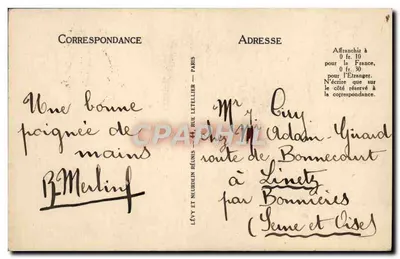 CORRESPONDANCE
ADRESSE
Affranchir à
0 fr. 10
pour la France,
0 fr. 30
pour l'Etranger.
N'écrire que sur
le côté réservé à
la correspondance.
Une bonne
poignée de
mains
R Merlin
LÉVY ET NEURDEIN RÉUNIS — 44, RUE LETELLIER — PARIS
Mr Cury
chez Mr Adam Girard
route de Bonnecourt
à Limetz
par Bonnières
(Seine et Oise)
CPArama.com